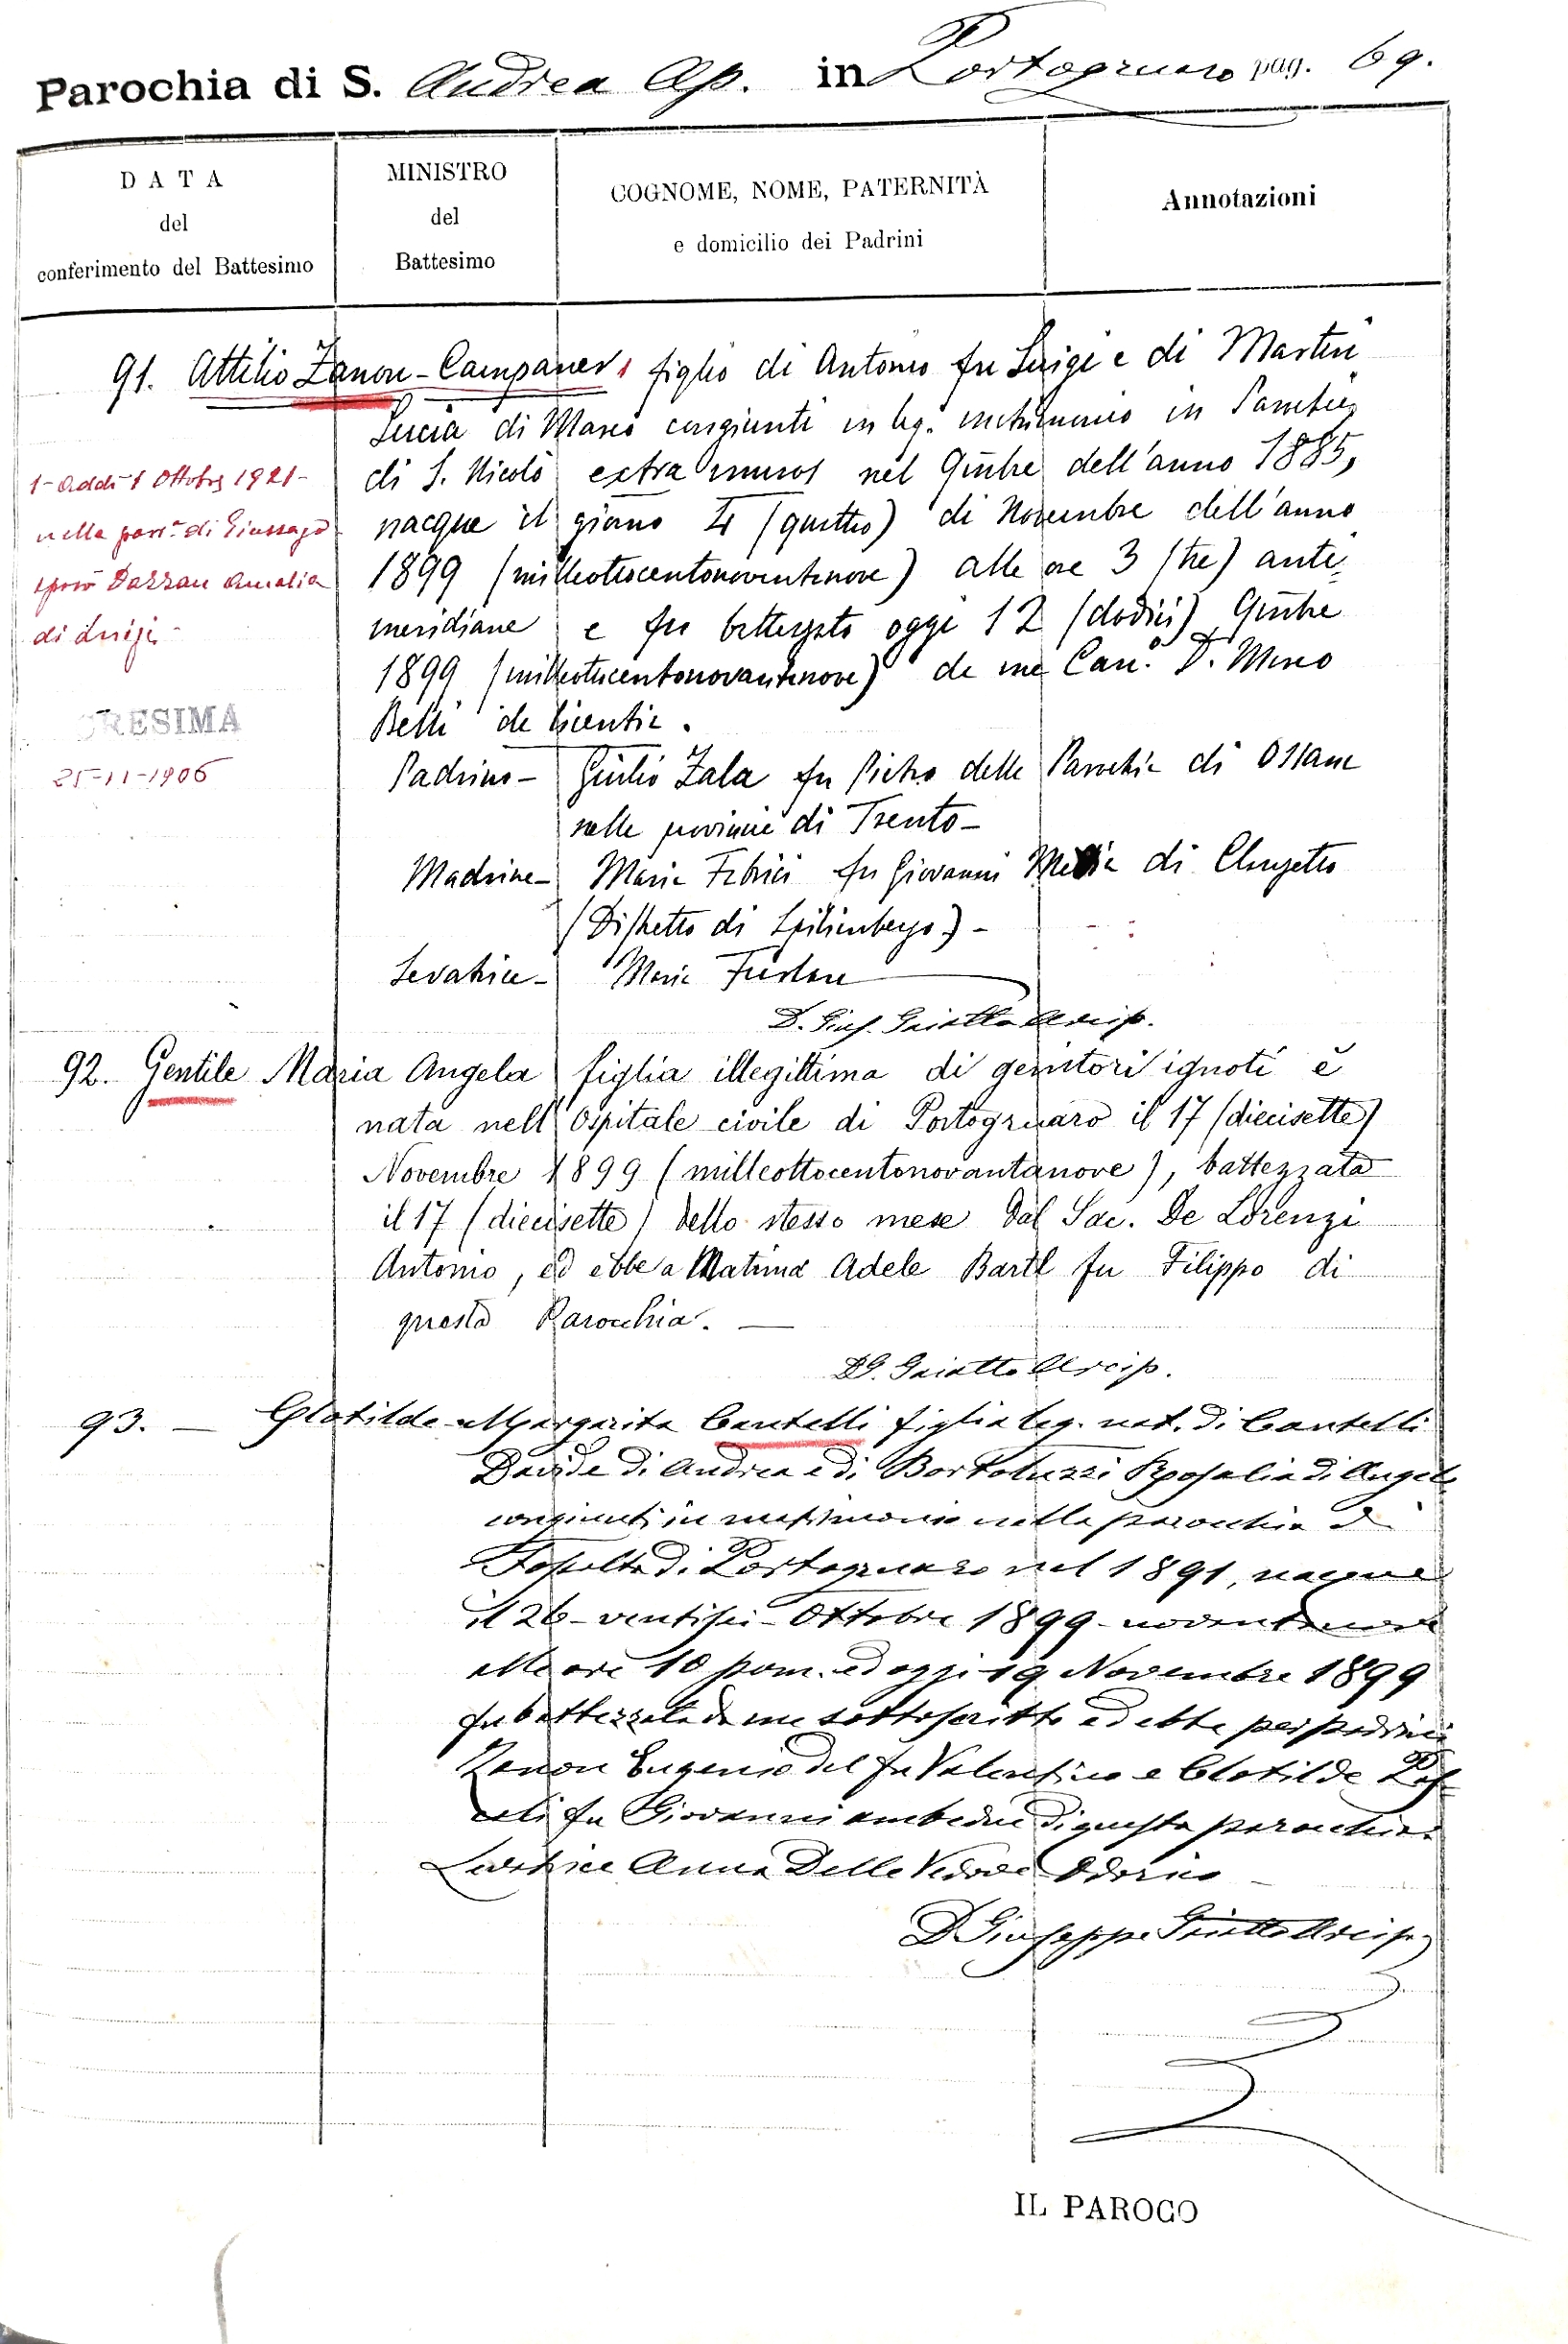 Parochia di S. Andrea Ap. in Portogruaro pag. 69.
DATA
del
conferimento del Battesimo
MINISTRO
del
Battesimo
COGNOME, NOME, PATERNITÀ
e domicilio dei Padrini
Annotazioni
91. Attilio Zanon-Campaner 1 figlio di Antonio fu Luigi e di Martin
Lucia di Marco congiunti in leg. matrimonio in Parochia
di S. Nicolò extra muros nel 9mbre dell'anno 1885,
nacque il giorno 4 (quattro) di Novembre dell'anno
1899 (milleottocentonovantanove) alle ore 3 (tre) anti
meridiane e fu battezzato oggi 12 (dodici) 9mbre
1899 (milleottocentonovantanove) da me Can.o D. Marco
Belli de licentia.
Padrino - Giulio Zala fu Pietro della Parochia di Ossana
nella provincia di Trento -
Madrina - Maria Fabrici fu Giovanni Maria di Clauzetto
(Distretto di Spilimbergo) -
Levatrice - Maria Furlan
D. Gius. Giatto Arcip.
1 - Addì 1 Ottobre 1921 -
nella parr.a di Giussago
sposò Dazzan Amalia
di Luigi -
CRESIMA
25-11-1906
92. Gentile Maria Angela figlia illegittima di genitori ignoti è
nata nell'Ospitale civile di Portogruaro il 17 (diecisette)
Novembre 1899 (milleottocentonovantanove), battezzata
il 17 (diecisette) dello stesso mese dal Sac. De Lorenzi
Antonio, ed ebbe a Matrina Adele Bartl fu Filippo di
questa Parocchia. —
D G. Giatto Arcip.
93. — Clotilde Margarita Cantelli figlia leg. nat. di Cantelli
Davide di Andrea e di Bortoluzzi Rosalia di Angelo
congiunti in matrimonio nella parochia di
Fossalta di Portogruaro nel 1891, nacque
il 26 - ventisei - Ottobre 1899 - novantanove
alle ore 10 pom. ed oggi 19 Novembre 1899
fu battezzata da me sottoscritto ed ebbe per padrini
Zanon Eugenio del fu Valentino e Clotilde
fu Giovanni ambedue di questa parochia.
Levatrice Anna Delle Vedove Odorico
D Giuseppe Giatto Arcip.
IL PAROCO